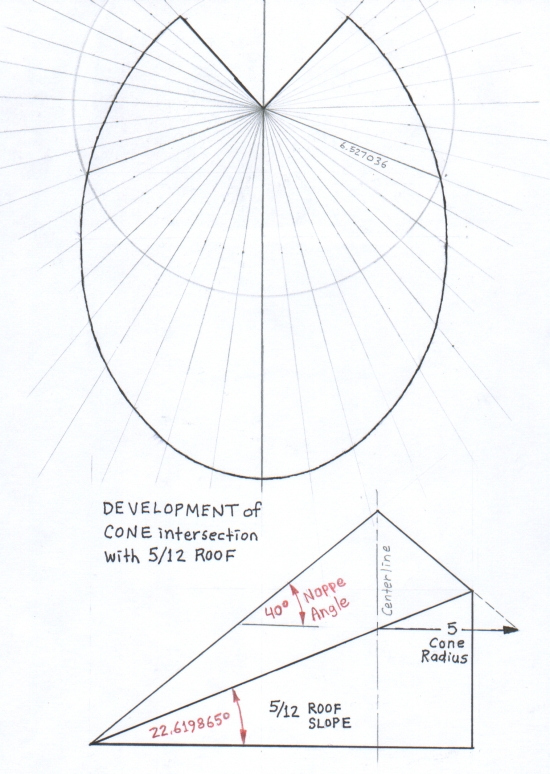 6.527036
DEVELOPMENT of
CONE intersection
with 5/12 ROOF
Centerline
40° Noppe
Angle
5
Cone
Radius
5/12 ROOF
SLOPE
22.619865°